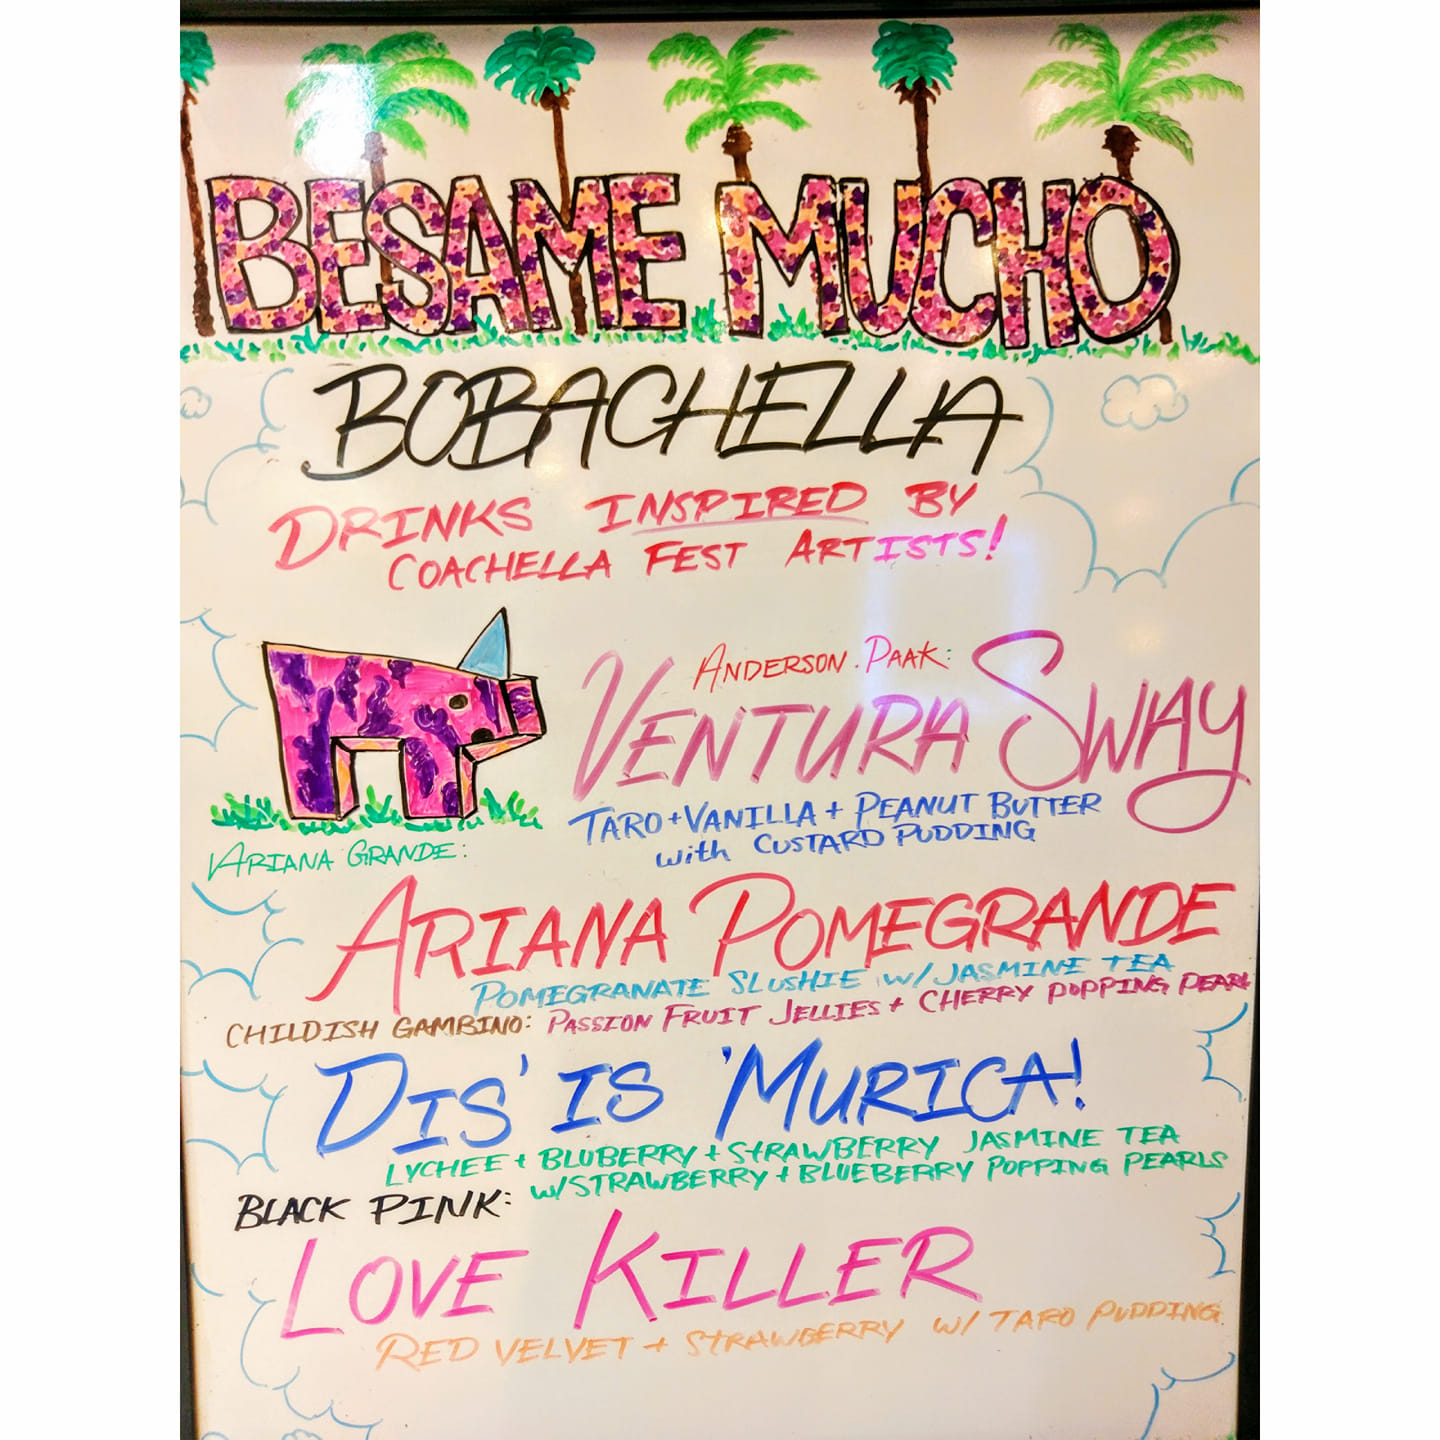 BESAME MUCHO
BOBACHELLA
DRINKS INSPIRED BY
COACHELLA FEST ARTISTS!
ANDERSON.PAAK:
VENTURA SWAY
TARO+VANILLA+PEANUT BUTTER
with CUSTARD PUDDING
ARIANA GRANDE:
ARIANA POMEGRANDE
POMEGRANATE SLUSHIE W/JASMINE TEA
CHILDISH GAMBINO: PASSION FRUIT JELLIES+CHERRY POPPING PEARL
DIS' IS 'MURICA!
LYCHEE+BLUBERRY+STRAWBERRY JASMINE TEA
BLACK PINK: W/STRAWBERRY+BLUEBERRY POPPING PEARLS
LOVE KILLER
RED VELVET+STRAWBERRY W/TARO PUDDING